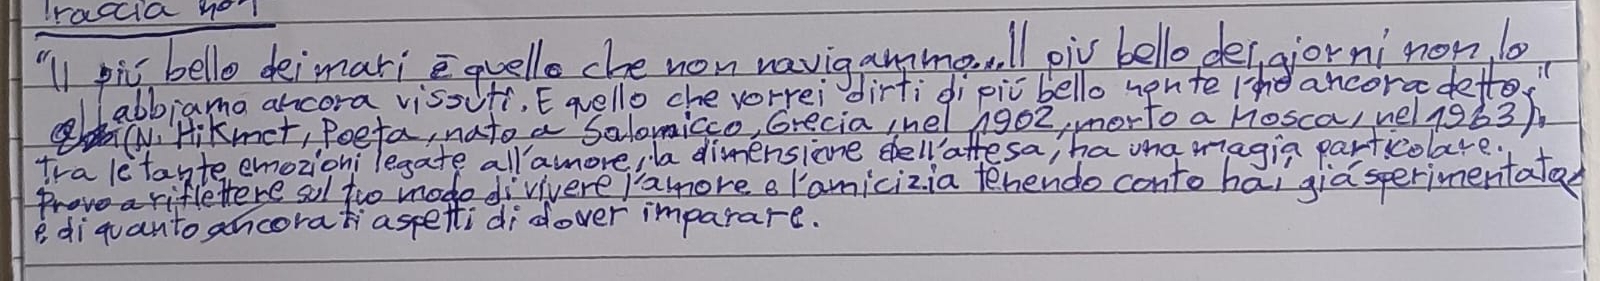 Traccia non
"Il più bello dei mari è quello che non navigammo... Il più bello dei giorni non lo
abbiamo ancora vissuti. E quello che vorrei dirti di più bello non te l'ho ancora detto."
(N. Hikmet, Poeta, nato a Salonicco, Grecia, nel 1902, morto a Mosca, nel 1963).
Tra le tante emozioni legate all'amore, la dimensione dell'attesa, ha una magia particolare.
Prova a riflettere sul tuo modo di vivere l'amore e l'amicizia tenendo conto hai già sperimentato
e di quanto ancora ti aspetti di dover imparare.